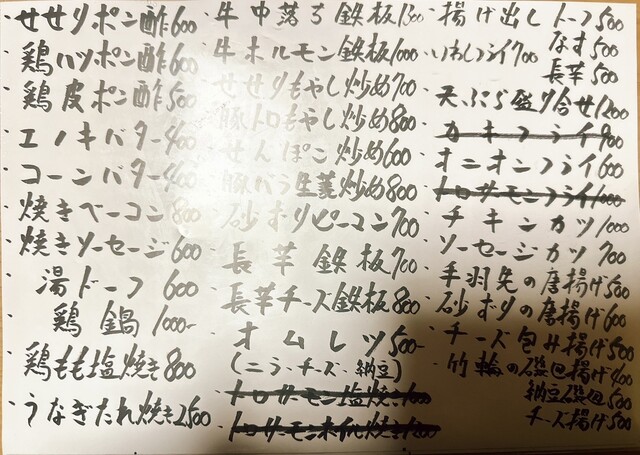 ・せせりポン酢600
・鶏ハツポン酢600
・鶏皮ポン酢500
・エノキバター400
・コーンバター400
・焼きベーコン800
・焼きソーセージ600
・湯ドーフ600
・鶏鍋1000-
・鶏もも塩焼き800
・うなぎたれ焼き2,500
・牛中落ち鉄板1300
・牛ホルモン鉄板1000
・せせりもやし炒め700
・豚トロもやし炒め800
・せんぽこ炒め600
・豚バラ生姜炒め800
・砂ずりピーマン700
・長芋鉄板700
・長芋チーズ鉄板800
・オムレツ500-
(ニラ・チーズ・納豆)
・トロサーモン塩焼き
・トロサーモンホイル焼き
・揚げ出しトーフ500
なす500
長芋500
・いわしフライ700
・天ぷら盛り合せ1200
・カキフライ900
・オニオンフライ600
・トロサーモンフライ1000
・チキンカツ1000
・ソーセージカツ700
・手羽先の唐揚げ500
・砂ずりの唐揚げ600
・チーズ包み揚げ500
・竹輪の磯辺揚げ400
納豆磯辺500
チーズ揚げ500